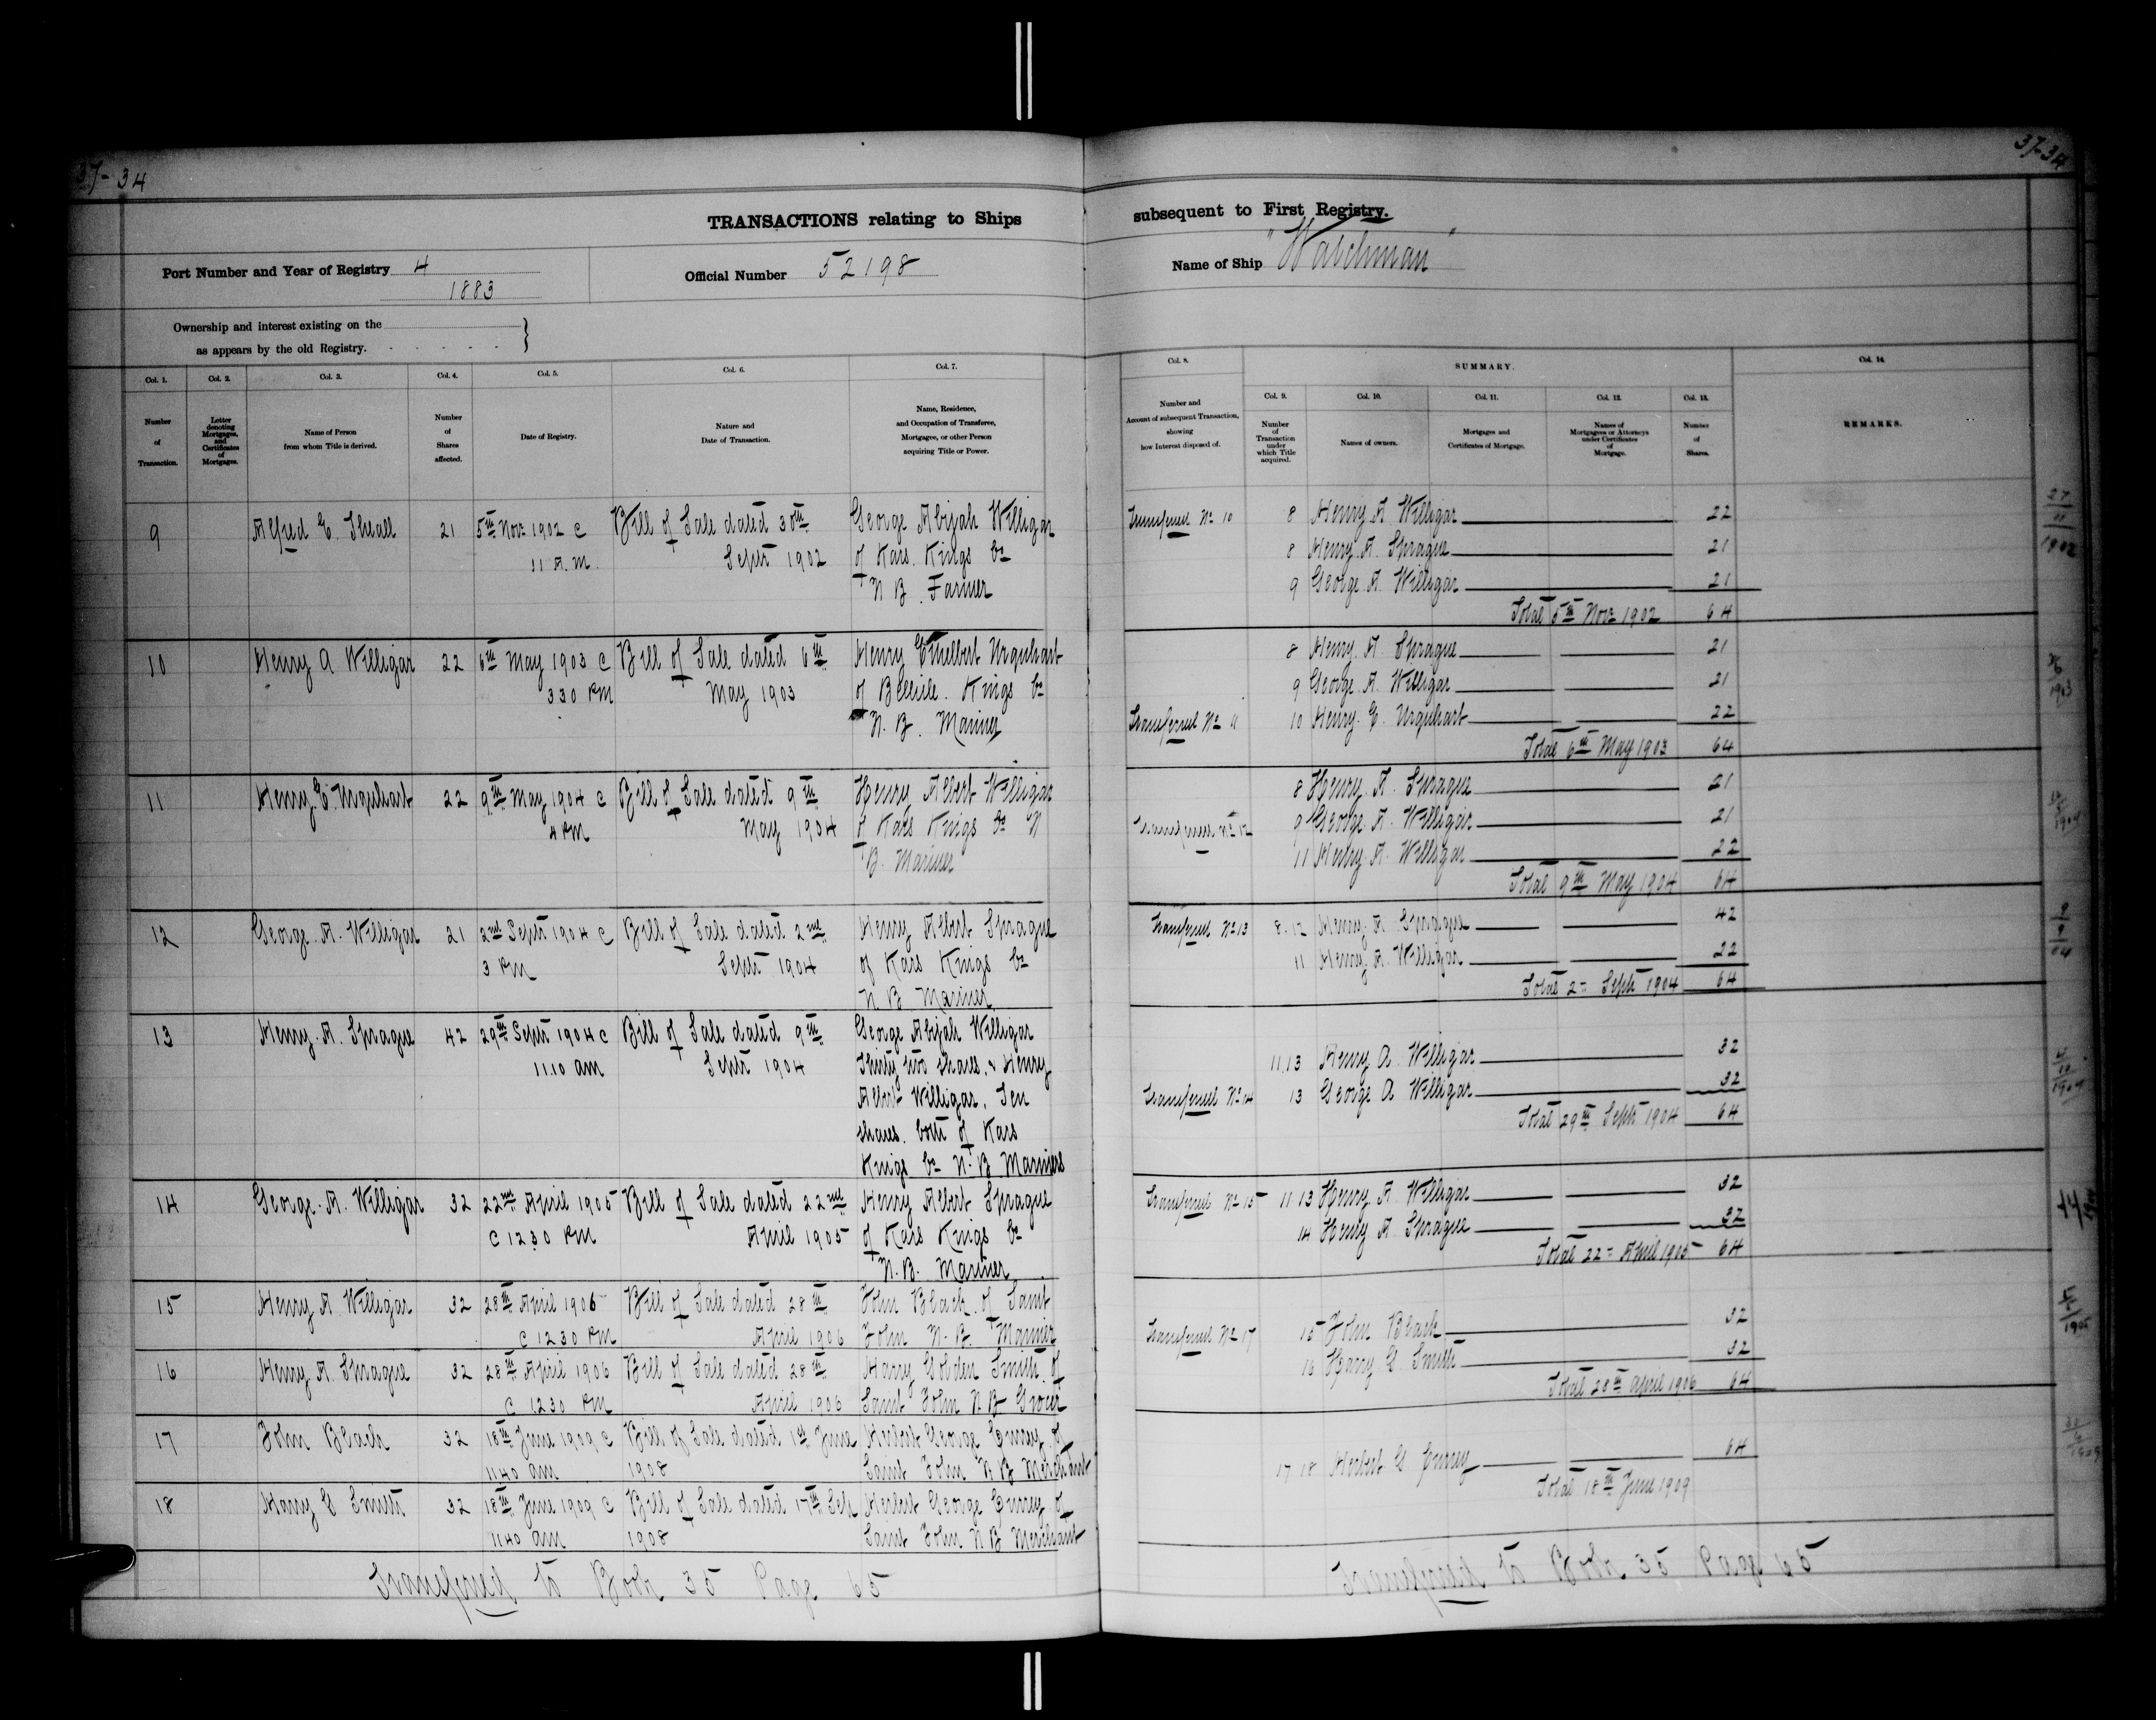 37-34
37-34
TRANSACTIONS relating to Ships
subsequent to First Registry.
Port Number and Year of Registry 4
1883
Official Number 52198
Name of Ship "Watchman"
Ownership and interest existing on the
as appears by the old Registry.
Col. 1. Col. 2. Col. 3. Col. 4. Col. 5. Col. 6. Col. 7.
Number of Transaction.
Letter denoting Mortgages, and Certificates of Mortgages.
Name of Person from whom Title is derived.
Number of Shares affected.
Date of Registry.
Nature and Date of Transaction.
Name, Residence, and Occupation of Transferee, Mortgagee, or other Person acquiring Title or Power.
9 Alfred E. Theall 21 5th Novr 1902 C Bill of Sale dated 30th George Abijah Willigar
11 A.M. Septr 1902 of Kars. Kings Co
N B. Farmer
10 Henry A Willigar 22 6th May 1903 C Bill of Sale dated 6th Henry Ethelbert Urquhart
3 30 PM May 1903 of Bellisle. Kings Co
N. B. Mariner
11 Henry E. Urquhart 22 9th May 1904 C Bill of Sale dated 9th Henry Albert Willigar
4 PM May 1904 of Kars Kings Co N
B. Mariner
12 George. A. Willigar 21 2nd Septr 1904 C Bill of Sale dated 2nd Henry Albert Sprague
3 PM Septr 1904 of Kars Kings Co
N B Mariner
13 Henry. A. Sprague 42 29th Septr 1904 C Bill of Sale dated 9th George Abijah Willigar
11.10 am Septr 1904 Thirty two shares, & Henry
Albert Willigar, Ten
shares. both of Kars
Kings Co N. B Mariners
14 George. A. Willigar 32 22nd April 1905 Bill of Sale dated 22nd Henry Albert Sprague
C 12 30 PM April 1905 of Kars Kings Co
N. B. Mariner
15 Henry A. Willigar 32 28th April 1906 Bill of Sale dated 28th John Black. of Saint
C 12 30 PM April 1906 John N. B. Mariner
16 Henry A. Sprague 32 28th April 1906 Bill of Sale dated 28th Harry Golden Smith. of
C 12 30 PM April 1906 Saint John N. B Grocer
17 John Black 32 18th June 1909 C Bill of Sale dated 1st June Herbert George Currey of
11 40 am 1908 Saint John N B Merchant
18 Harry G Smith 32 18th June 1909 C Bill of Sale dated 17th Sep Herbert George Currey of
11 40 am 1908 Saint John N B Merchant
Transferred to Book 35 Page 65
Col. 8. SUMMARY. Col. 14.
Col. 9. Col. 10. Col. 11. Col. 12. Col. 13.
Number and Account of subsequent Transaction, showing how Interest disposed of.
Number of Transaction under which Title acquired.
Names of owners.
Mortgages and Certificates of Mortgage.
Names of Mortgagees or Attorneys under Certificates of Mortgage.
Number of Shares.
REMARKS.
Transferred No 10 8 Henry A Willigar 22
8 Henry A. Sprague 21
9 George A. Willigar 21
Total 5th Novr 1902 64
8 Henry A. Sprague 21
9 George A. Willigar 21
Transferred No 11 10 Henry. E. Urquhart 22
Total 6th May 1903 64
8 Henry. A. Sprague 21
Transferred No 12 9 George. A. Willigar 21
11 Henry. A. Willigar 22
Total 9th May 1904 64
Transferred No 13 8.12 Henry A. Sprague 42
11 Henry A. Willigar 22
Total 2nd Septr 1904 64
11.13 Henry A. Willigar 32
Transferred No 14 13 George A Willigar 32
Total 29th Septr 1904 64
Transferred No 15 11 13 Henry A. Willigar 32
14 Henry A Sprague 32
Total 22nd April 1905 64
Transferred No 17 15 John Black 32
16 Harry G. Smith 32
Total 28th April 1906 64
17 18 Herbert G Currey 64
Total 18th June 1909
Transferred to Book 35 Page 65
27/11/1902